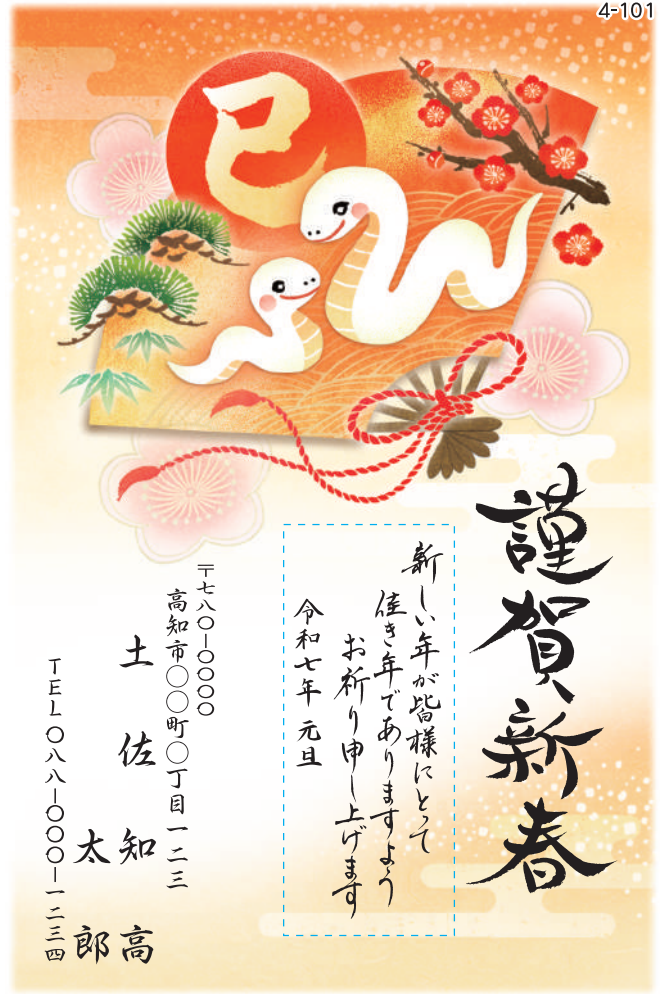 4-101
巳
謹賀新春
新しい年が皆様にとって
佳き年でありますよう
お祈り申し上げます
令和七年 元旦
〒七八〇－〇〇〇〇
高知市〇〇町〇丁目一二三
土佐知高
太郎
TEL〇八八－〇〇〇－一二三四